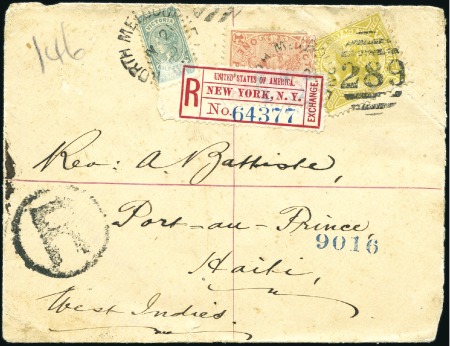 146
NORTH MELBOURNE
VICTORIA
289
UNITED STATES OF AMERICA.
R
NEW YORK, N.Y.
EXCHANGE.
No. 64377
Rev: A. Battiste,
Port-au-Prince,
9016
Haiti,
West Indies.
R